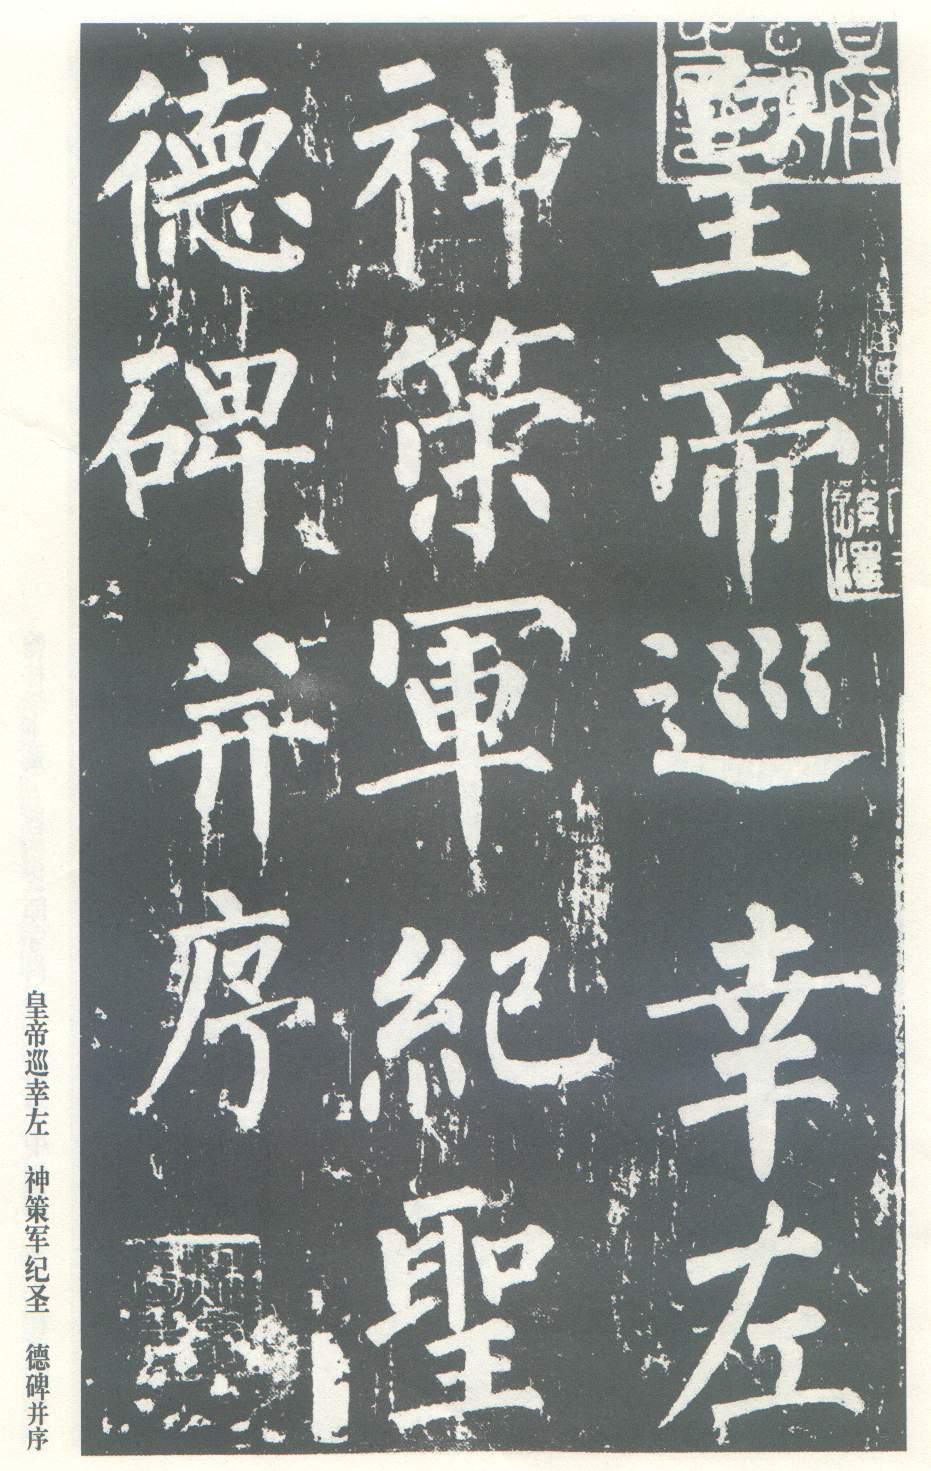 皇帝巡幸左
神策軍紀聖
德碑并序
皇帝巡幸左　神策军纪圣　德碑并序